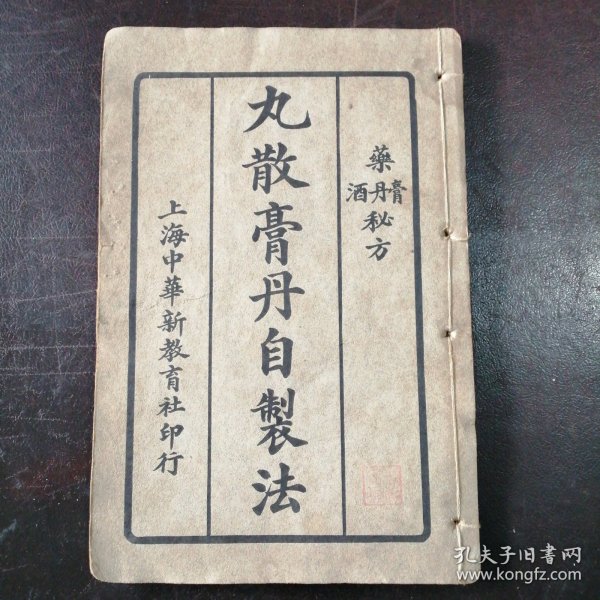 藥膏丹酒秘方
丸散膏丹自製法
上海中華新教育社印行
孔夫子旧書网
www.kongfz.com